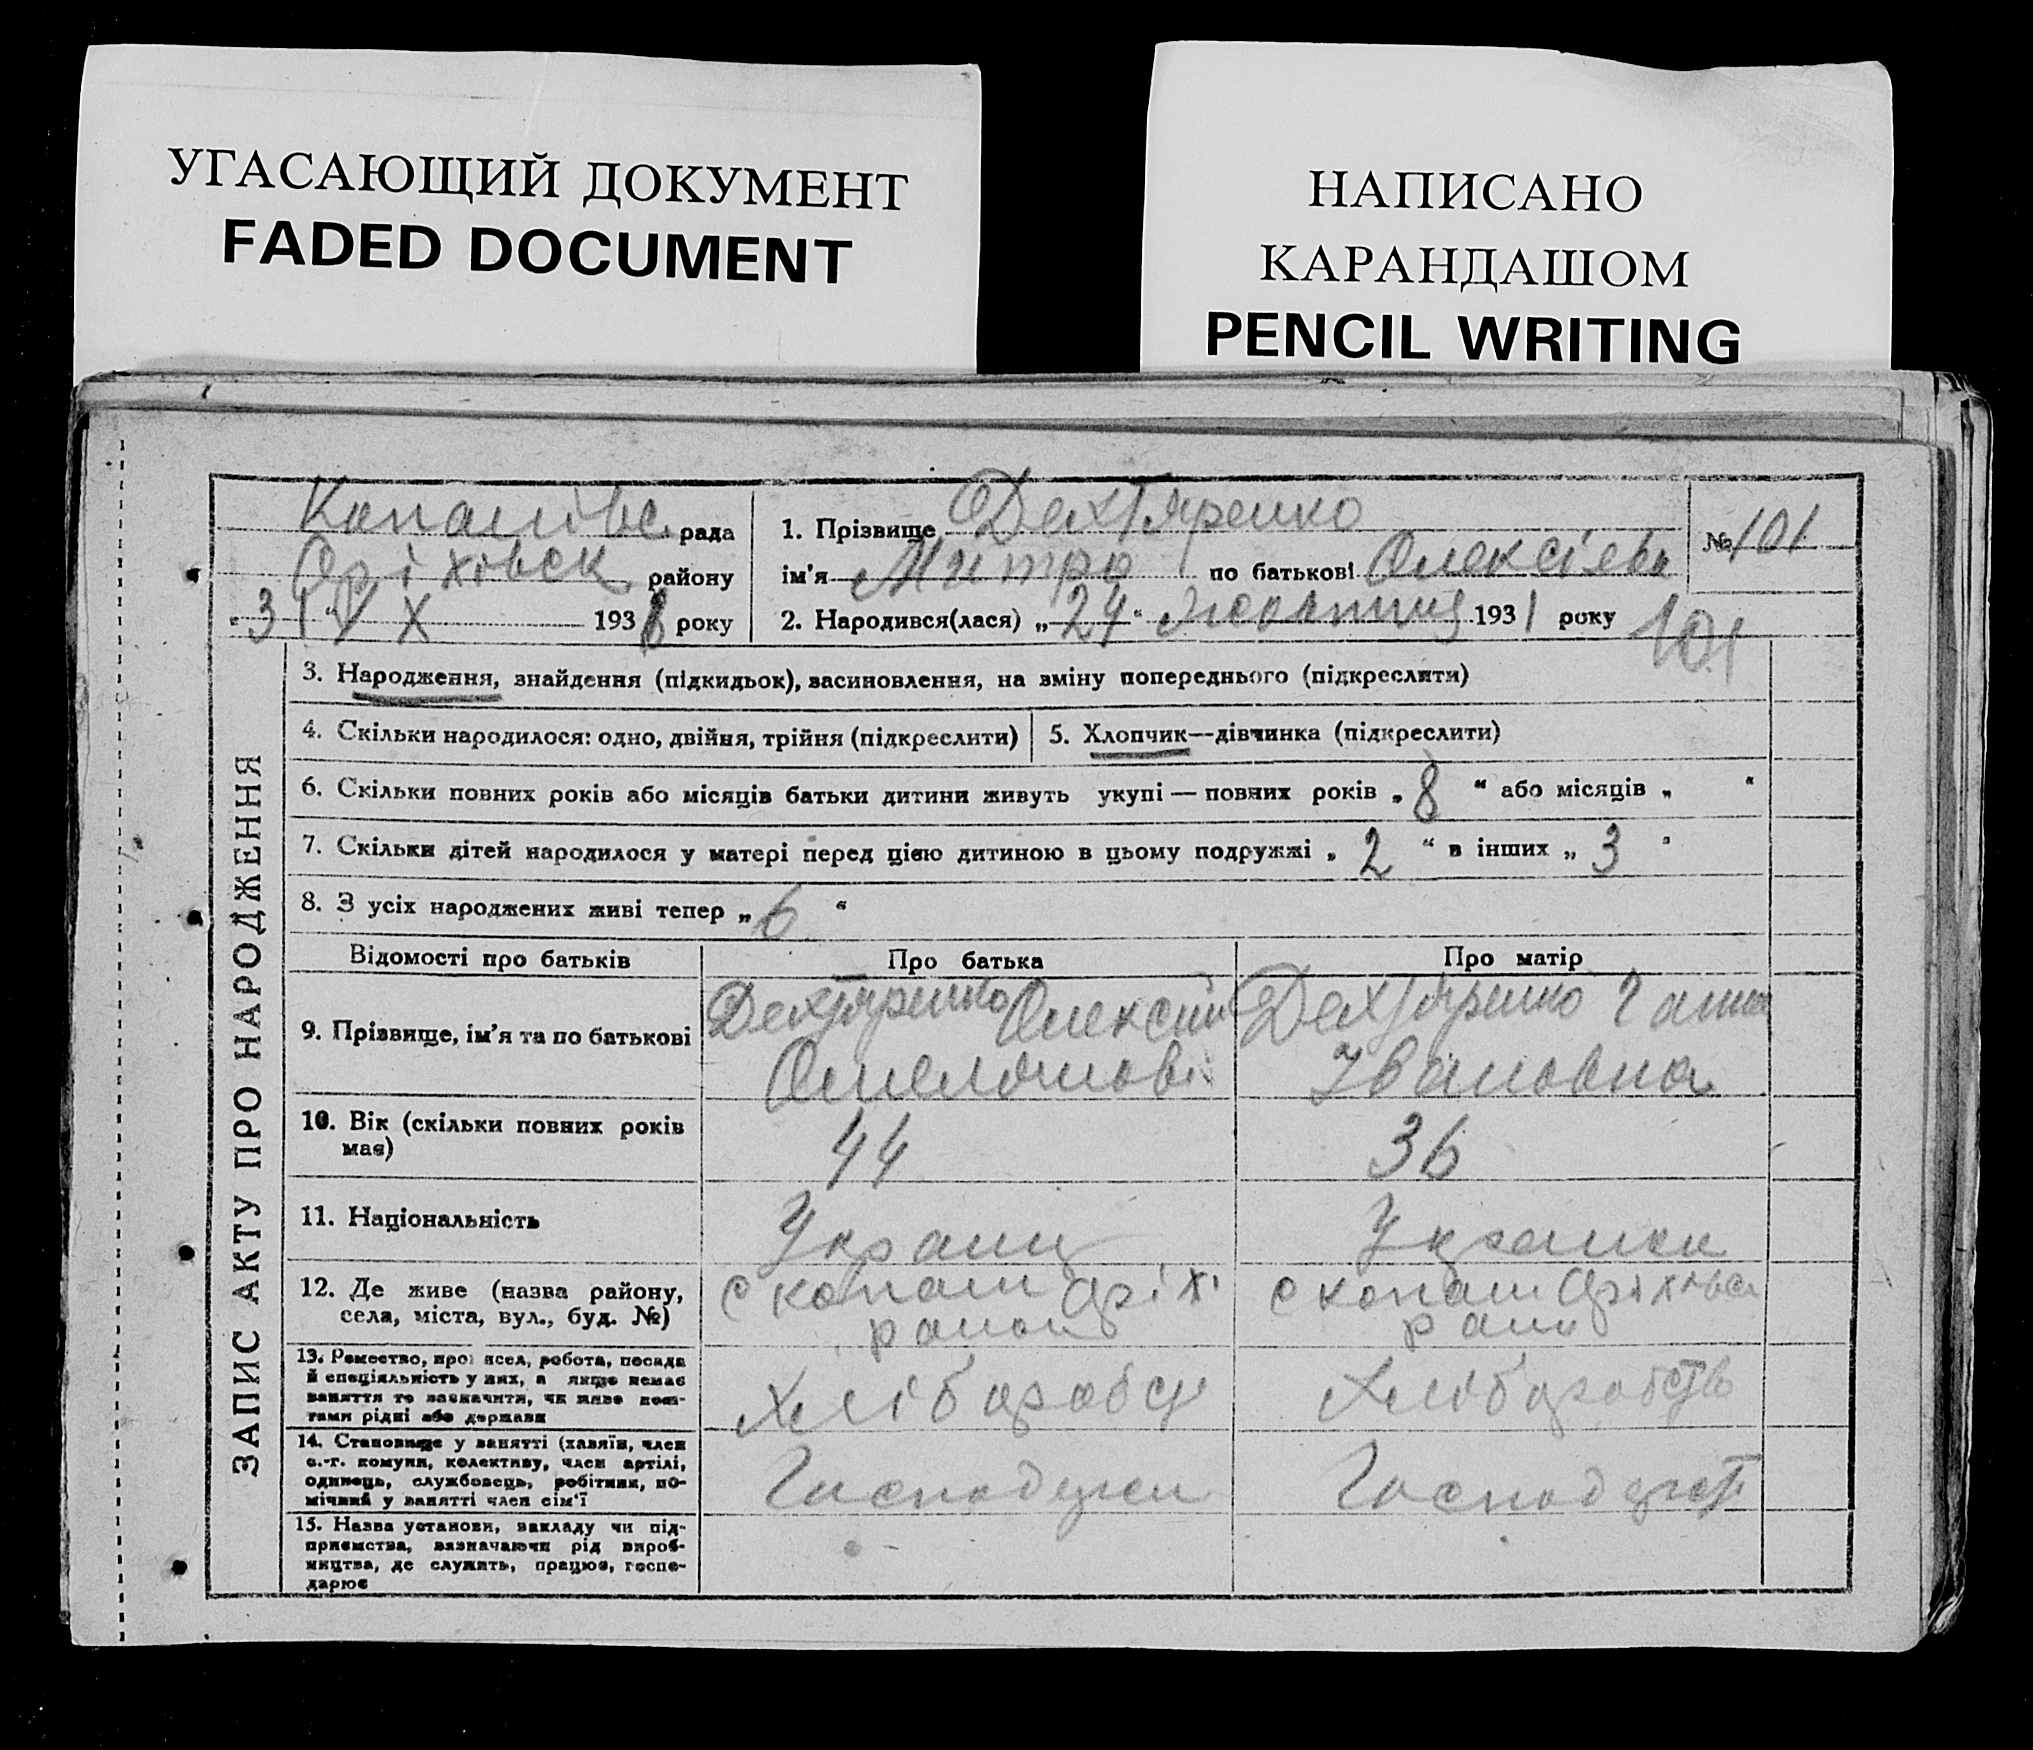 УГАСАЮЩИЙ ДОКУМЕНТ
FADED DOCUMENT
НАПИСАНО
КАРАНДАШОМ
PENCIL WRITING
Копанівс рада
Оріхівськ району
"31" X 193 року
1. Прізвище Дехтяренко
ім'я Митро по батькові Олексієв
2. Народився(лася) „24“ жовтня 1931 року
№ 101
101
ЗАПИС АКТУ ПРО НАРОДЖЕННЯ
3. Народження, знайдення (підкидьок), засиновлення, на зміну попереднього (підкреслити)
4. Скільки народилося: одно, двійня, трійня (підкреслити)
5. Хлопчик—дівчинка (підкреслити)
6. Скільки повних років або місяців батьки дитини живуть укупі — повних років „ 8 “ або місяців „ “
7. Скільки дітей народилося у матері перед цією дитиною в цьому подружжі „ 2 “ в інших „ 3 “
8. З усіх народжених живі тепер „ 6 “
Відомості про батьків
Про батька
Про матір
9. Прізвище, ім'я та по батькові
Дехтяренко Олексій
Омелянові
Дехтяренко Ганна
Івановна
10. Вік (скільки повних років
має)
44
36
11. Національність
Украин
Украинка
12. Де живе (назва району,
села, міста, вул., буд. №)
с Копани Оріхі
район
с Копани Оріхівс
райн
13. Ремество, промисел, робота, посада
й спеціяльність у них, а якщо немає
заняття то зазначити, чи живе кош-
тами рідні або держави
Хлібороб
Хліборобств
14. Становище у занятті (хазяїн, член
с.-г. комуни, колективу, член артілі,
одинець, службовець, робітник, по-
мічний у занятті член сім'ї
15. Назва установи, закладу чи під-
приємства, зазначаючи рід вироб-
ництва, де служить, працює, госпо-
дарює